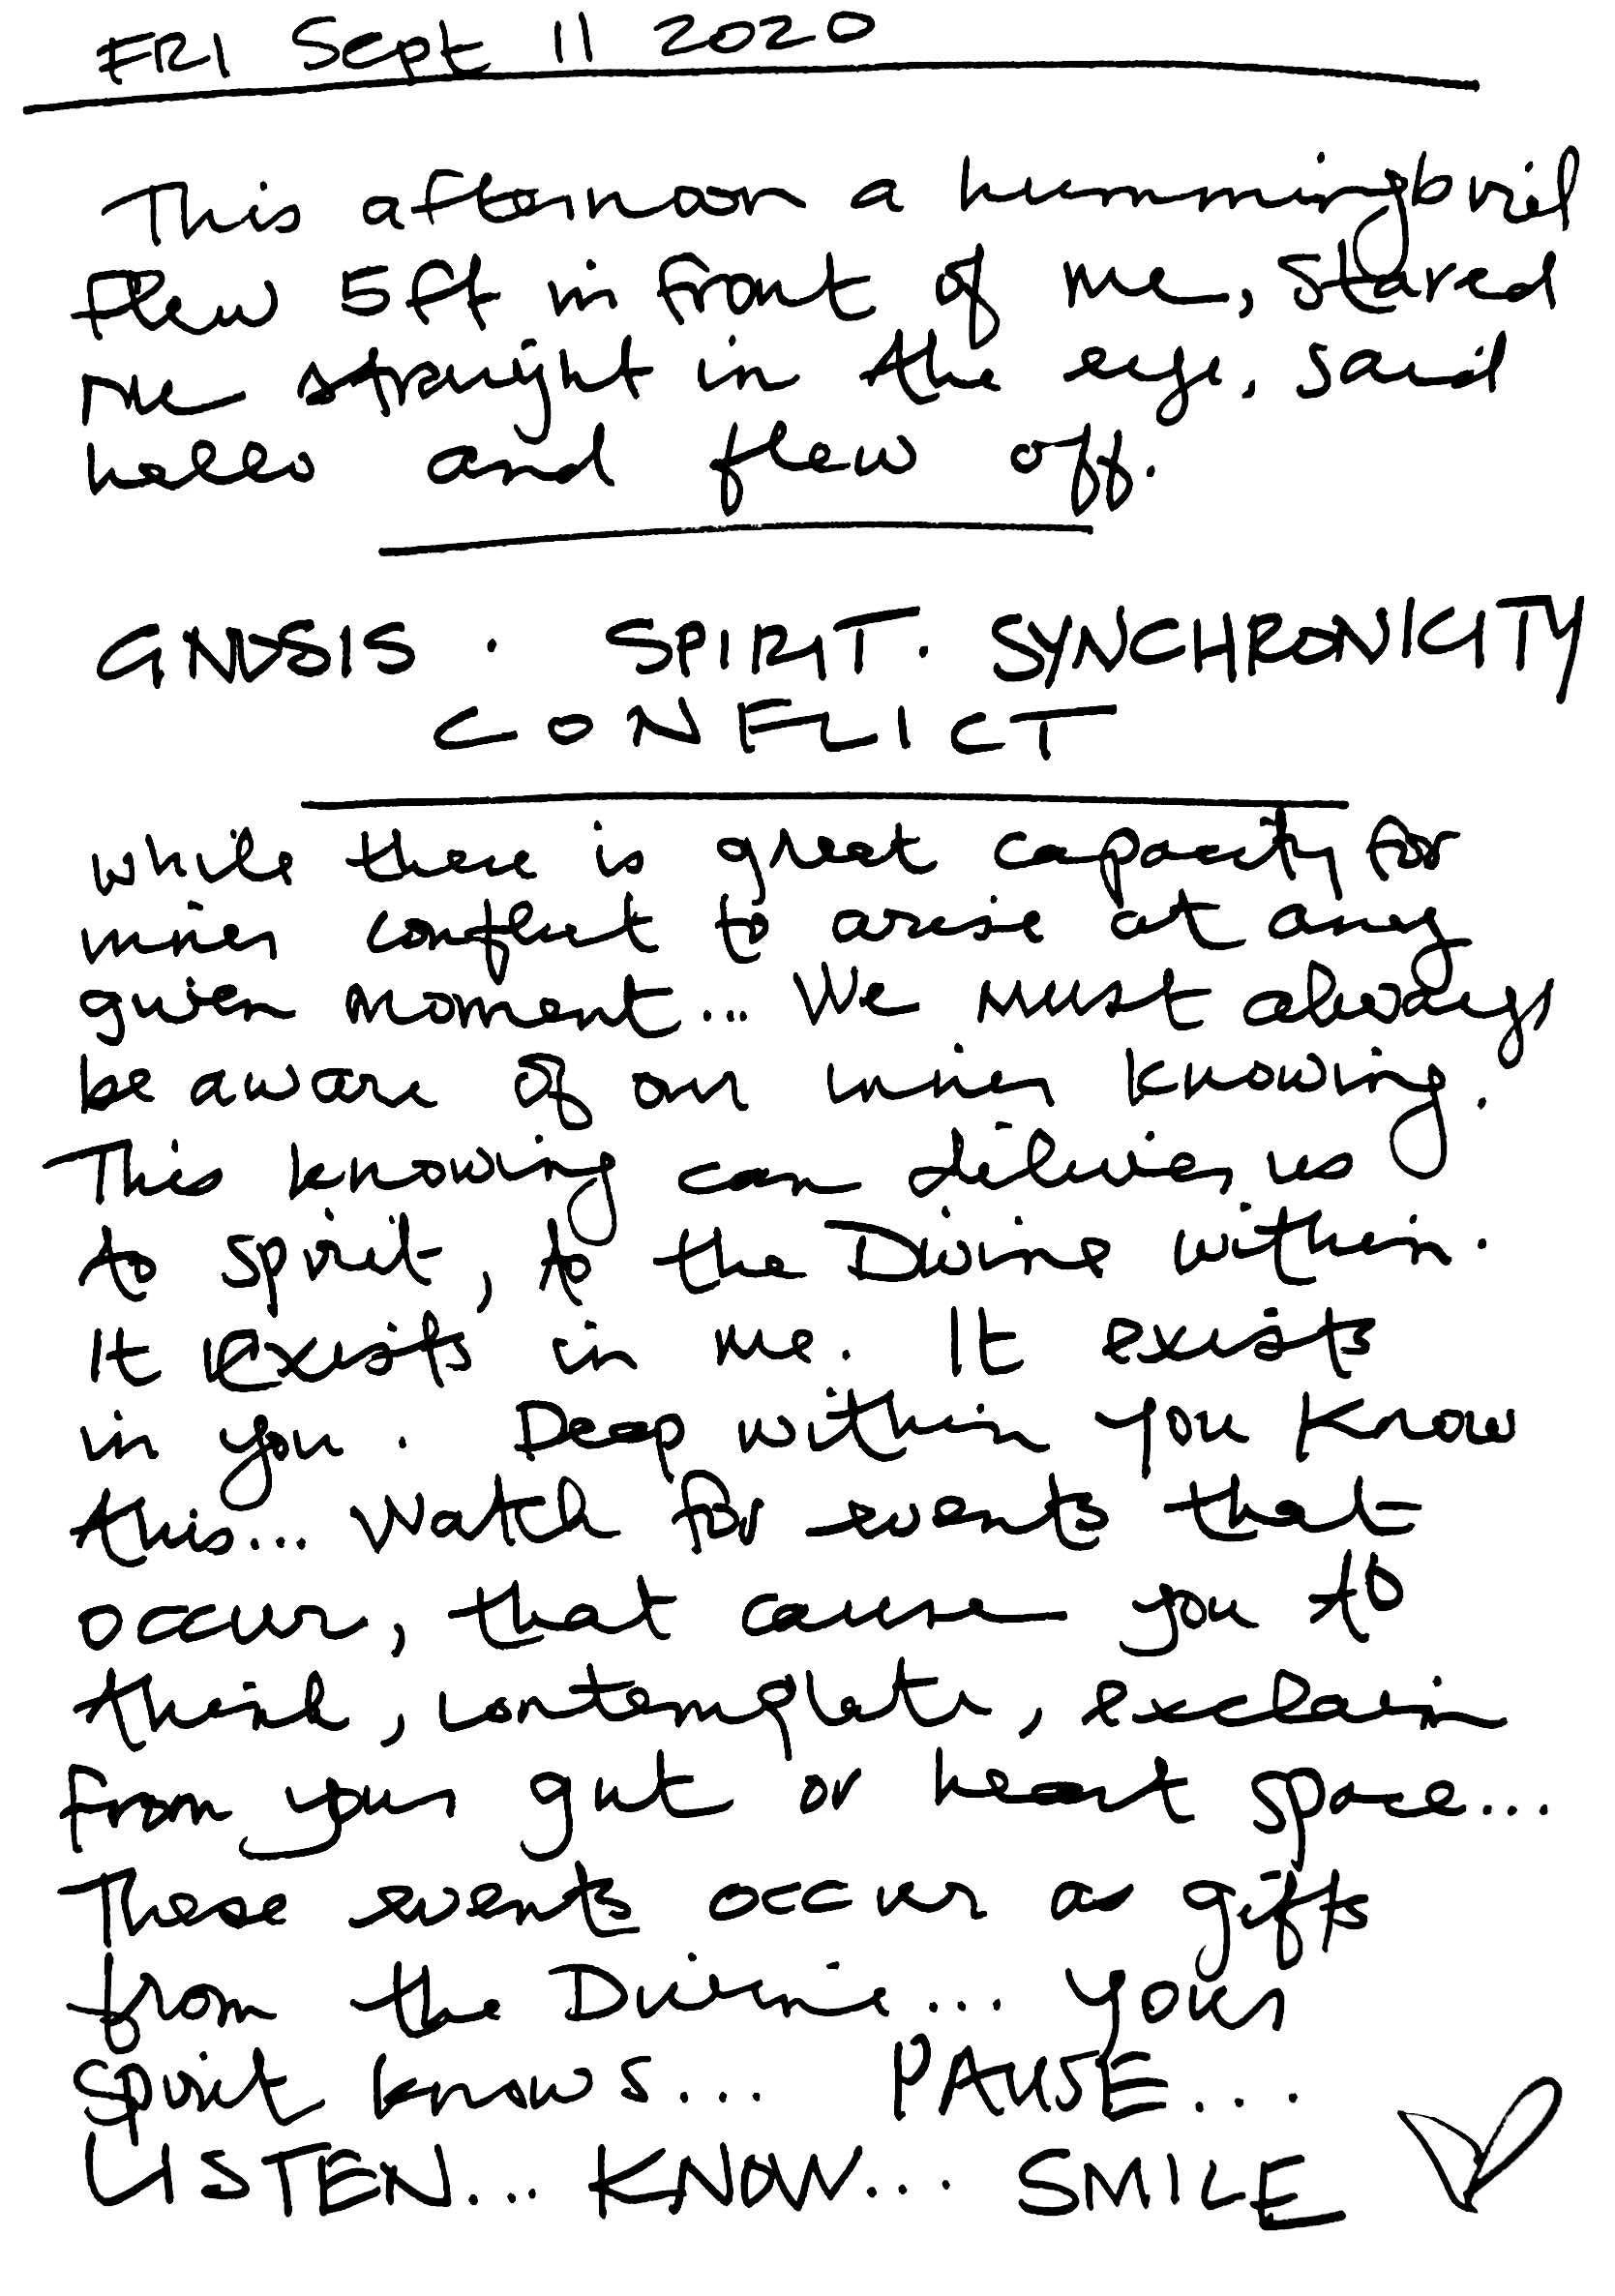 FRI Sept 11 2020
This afternoon a hummingbird
flew 5ft in front of me, stared
me straight in the eye, said
hello and flew off.
GNOSIS · SPIRIT · SYNCHRONICITY
CONFLICT
While there is great capacity for
inner conflict to arise at any
given moment... We must always
be aware of our inner knowing.
This knowing can deliver us
to spirit, to the Divine within.
It exists in me. It exists
in you. Deep within you know
this... Watch for events that
occur, that cause you to
think, contemplate, exclaim
from your gut or heart space...
These events occur as gifts
from the Divine... Your
spirit knows... PAUSE...
LISTEN... KNOW... SMILE